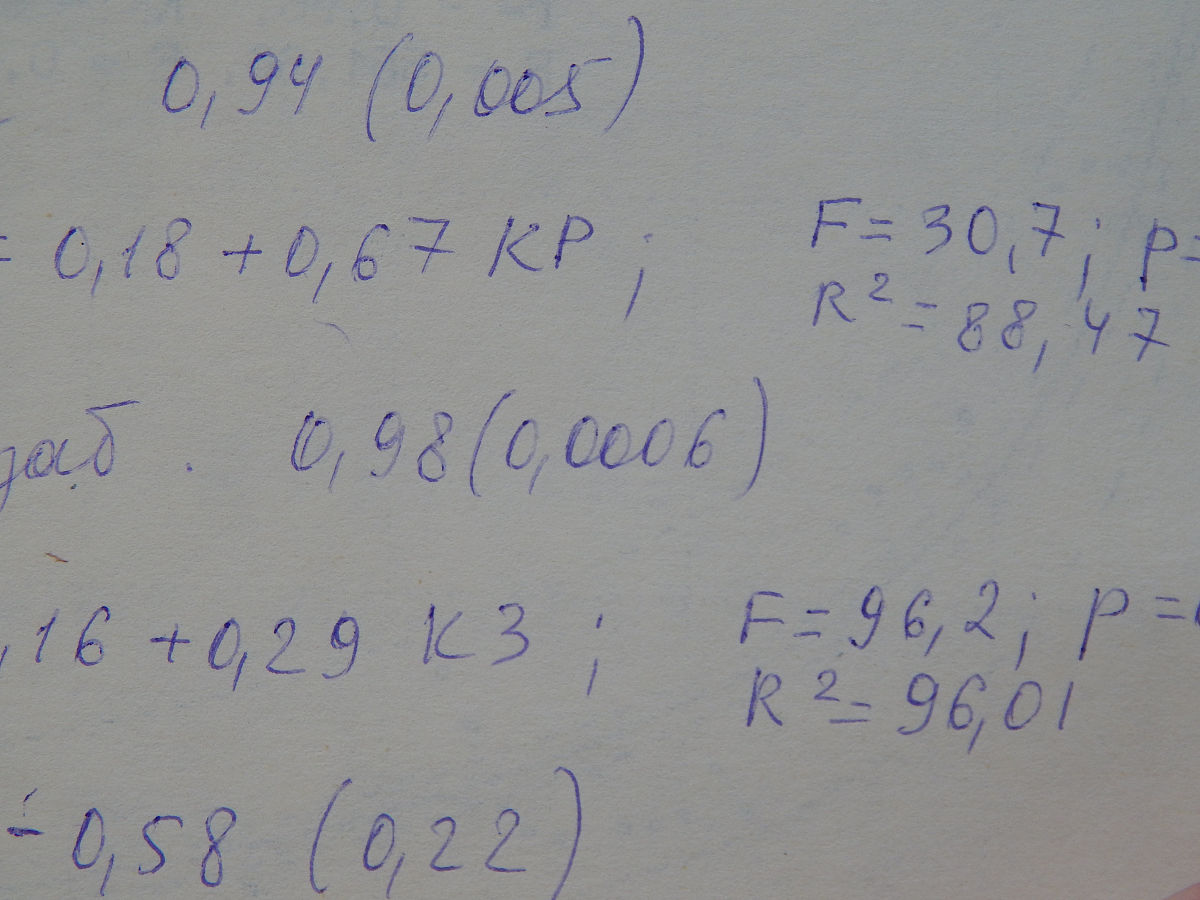 0,94 (0,005)
= 0,18 + 0,67 КР ; F = 30,7 ; p =
R² = 88,47
заб . 0,98 (0,0006)
,16 + 0,29 КЗ ; F = 96,2 ; p =
R² = 96,01
- 0,58 (0,22)